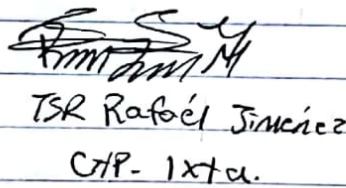 TSR Rafaél Jiménez
CHP- Ixta.